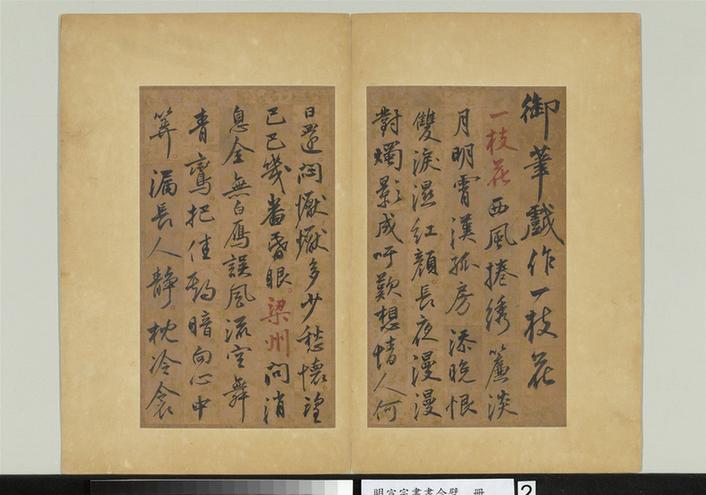 御筆戲作一枝花
一枝花西風捲綉簾淡
月明霄漢孤房添晚恨
雙淚濕紅顏長夜漫漫
對燭影成吁歎想情人何
日還悶懨懨多少愁懷望
巴巴幾番昏眼梁州问消
息全無白鴈誤風流空舞
青鸞把佳期暗向心中
筭漏長人靜枕冷衾
明宣宗書書合璧 冊
2